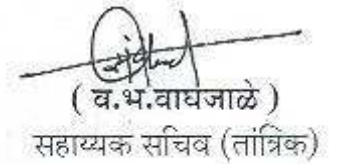 ( व.भ.वाघजाळे )
सहाय्यक सचिव (तांत्रिक)